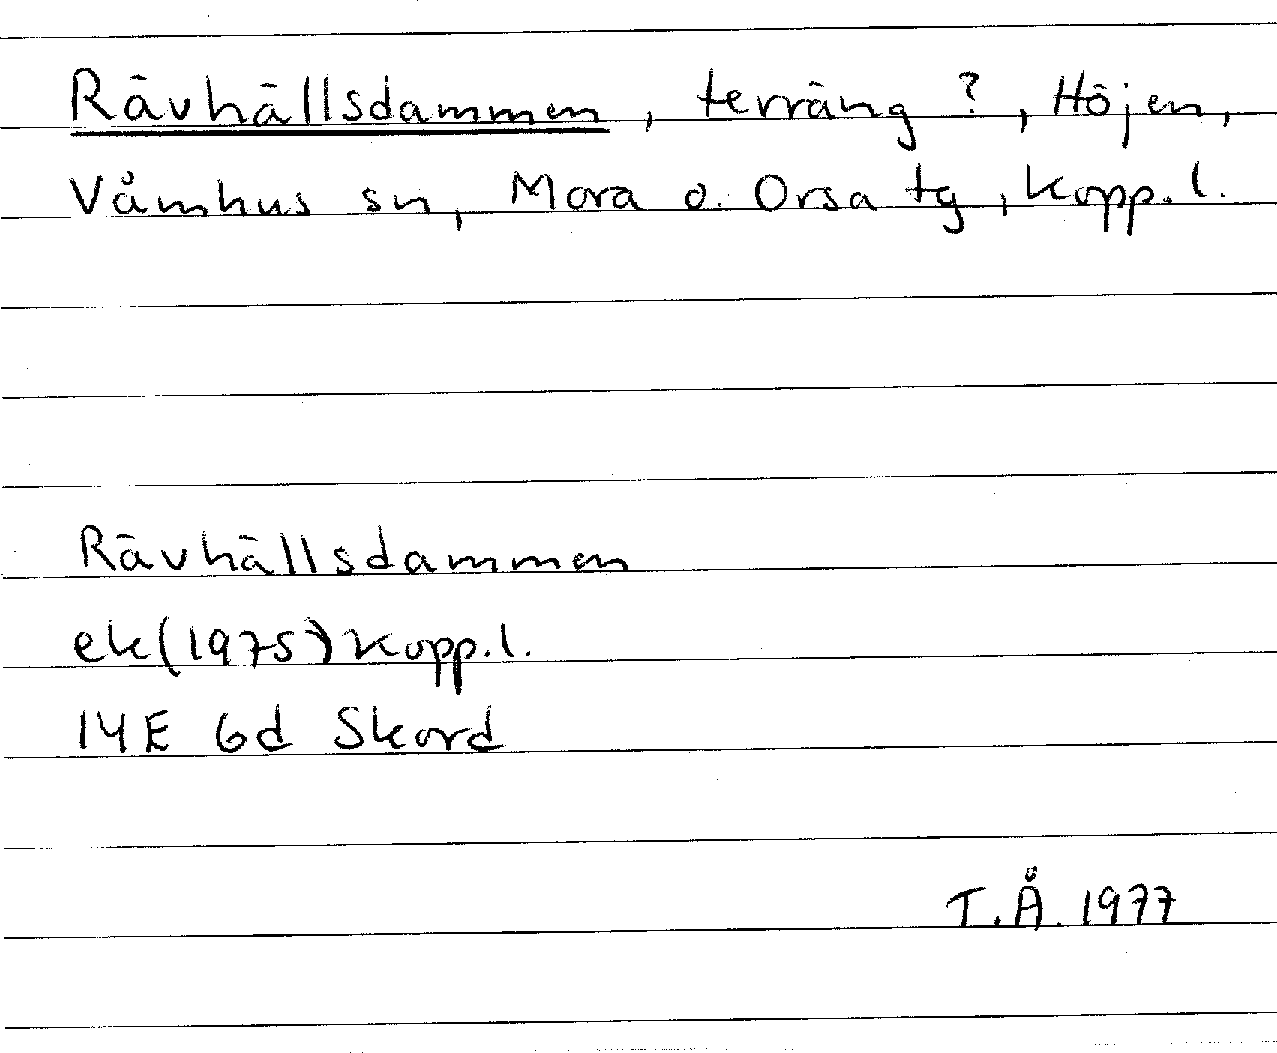 Rävhällsdammen, terräng ?, Höjen,
Våmhus sn, Mora o. Orsa tg, Kopp.l.
Rävhällsdammen
ek(1975) Kopp.l.
14E 6d Skord
T.Å. 1977